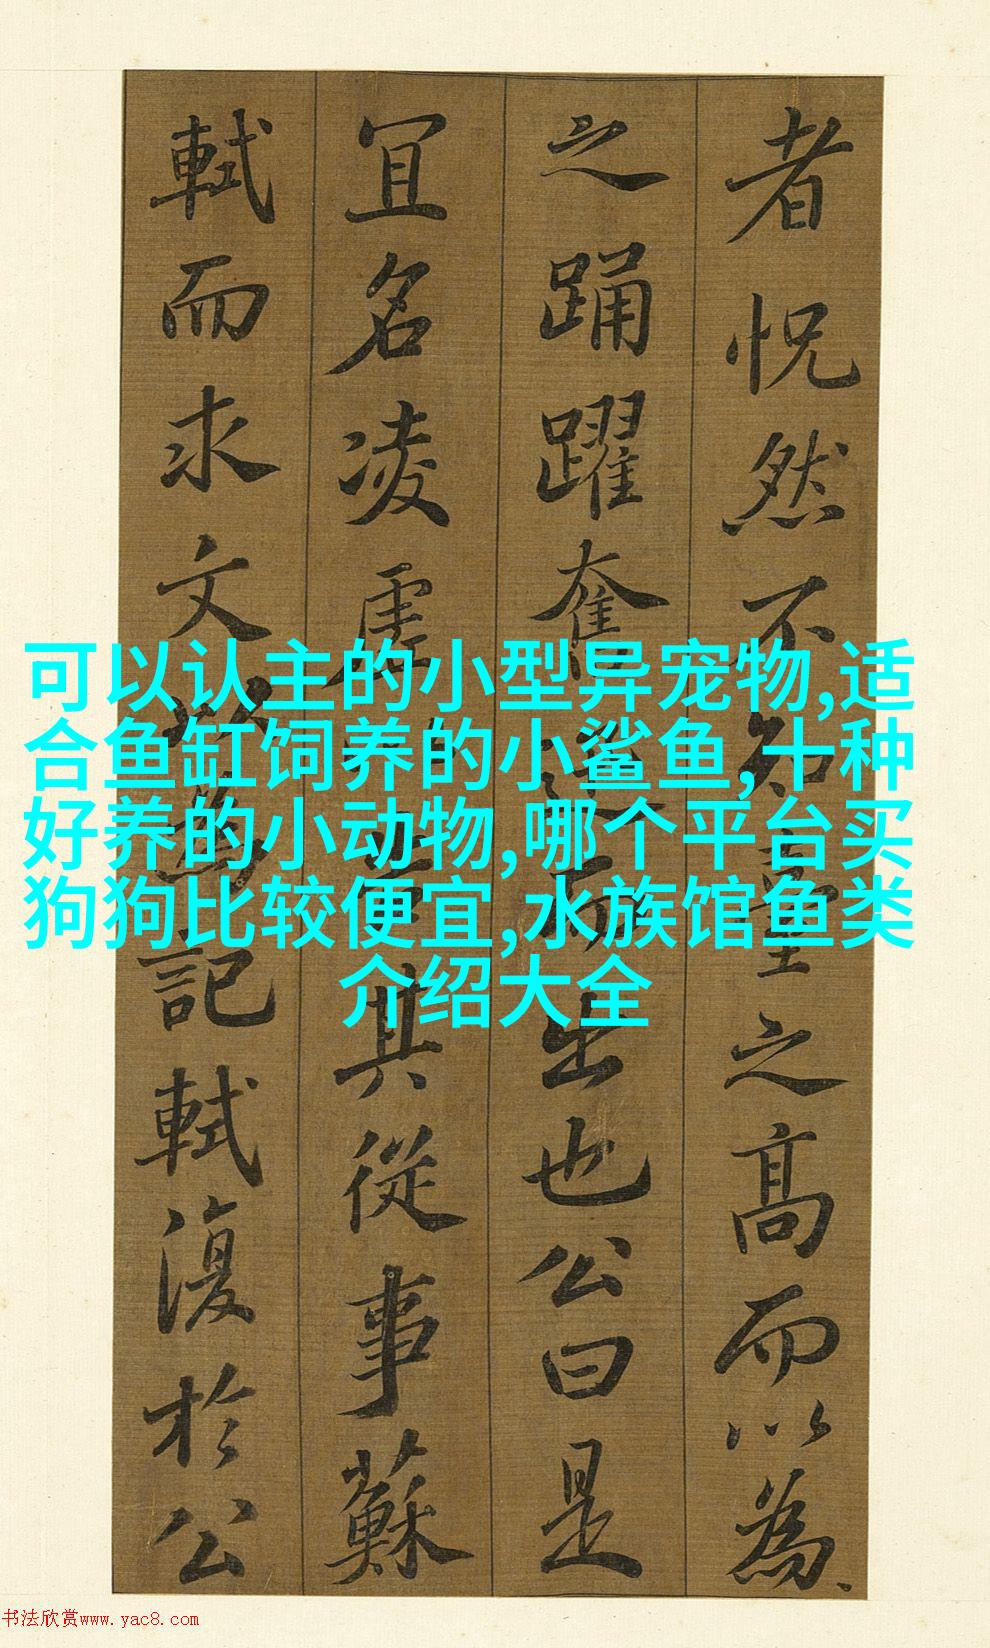 者怳然不知臺之高而以為
之踊躍奮迅而出也公曰是
宜名凌虛
其從事蘇
軾而求文以為記軾復於公
可以认主的小型异宠物,适
合鱼缸饲养的小鲨鱼,十种
好养的小动物,哪个平台买
狗狗比较便宜,水族馆鱼类
介绍大全
书法欣赏www.yac8.com